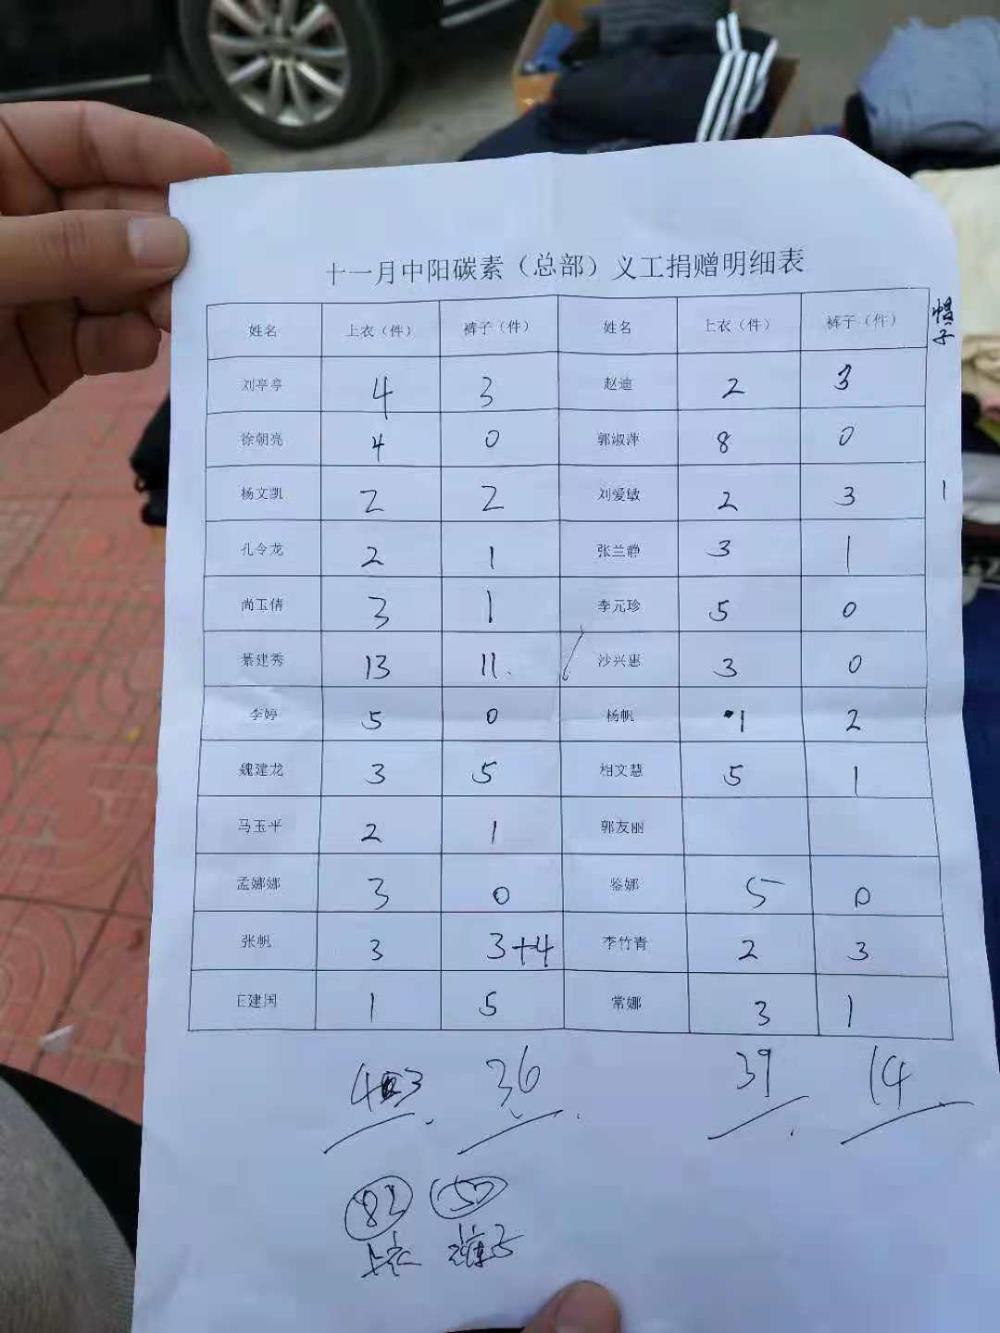 十一月中阳碳素（总部）义工捐赠明细表
姓名 上衣（件） 裤子（件） 姓名 上衣（件） 裤子（件） 帽子
刘亭亭 4 3 赵迪 2 3
徐朝亮 4 0 郭淑萍 8 0
杨文凯 2 2 刘爱敏 2 3 1
孔令龙 2 1 张兰静 3 1
尚玉倩 3 1 李元珍 5 0
綦建秀 13 11 沙兴惠 3 0
李婷 5 0 杨帆 1 2
魏建龙 3 5 相文慧 5 1
马玉平 2 1 郭友丽
孟娜娜 3 0 娜 5 0
张帆 3 3+4 李竹青 2 3
王建国 1 5 常娜 3 1
36 39 14
82 50
上衣 裤子